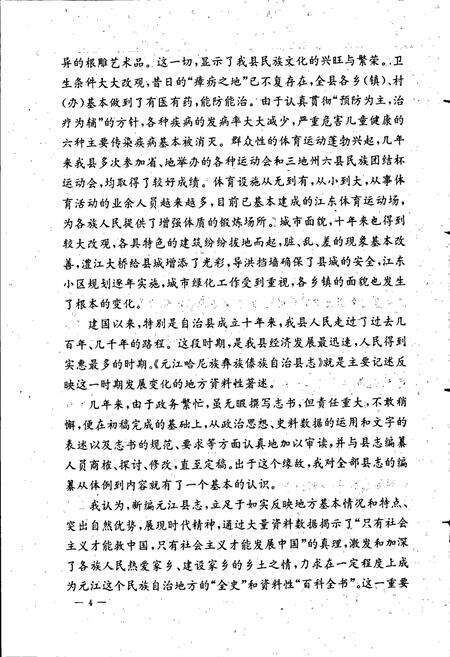 异的根雕艺术品。这一切,显示了我县民族文化的兴旺与繁荣。卫
生条件大大改观,昔日的“瘴疠之地”已不复存在,全县各乡(镇)、村
(办)基本做到了有医有药,能防能治。由于认真贯彻“预防为主,治
疗为辅”的方针,各种疾病的发病率大大减少,严重危害儿童健康的
六种主要传染疾病基本被消灭。群众性的体育运动蓬勃兴起,几年
来我县多次参加省、地举办的各种运动会和三地州六县民族团结杯
运动会,均取得了较好成绩。体育设施从无到有,从小到大,从事体
育活动的业余人员越来越多,目前已基本建成的江东体育运动场,
为各族人民提供了增强体质的锻炼场所。城市面貌,十年来也得到
较大改观,各具特色的建筑纷纷拔地而起,脏、乱、差的现象基本改
善,澧江大桥给县城增添了光彩,导洪挡墙确保了县城的安全,江东
小区规划逐年实施,城市绿化工作受到重视,各乡镇的面貌也发生
了根本的变化。
建国以来,特别是自治县成立十年来,我县人民走过了过去几
百年、几千年的路程。这段时期,是我县经济发展最迅速,人民得到
实惠最多的时期。《元江哈尼族彝族傣族自治县志》就是主要记述反
映这一时期发展变化的地方资料性著述。
几年来,由于政务繁忙,虽无暇撰写志书,但责任重大,不敢稍
懈,便在初稿完成的基础上,从政治思想、史料数据的运用和文字的
表述以及志书的规范、要求等方面认真地加以审读,并与县志编纂
人员商榷、探讨、修改,直至定稿。出于这个缘故,我对全部县志的编
纂从体例到内容就有了一个基本的认识。
我认为,新编元江县志,立足于如实反映地方基本情况和特点、
突出自然优势,展现时代精神,通过大量资料数据揭示了“只有社会
主义才能救中国,只有社会主义才能发展中国”的真理,激发和加深
了各族人民热爱家乡、建设家乡的乡土之情,力求在一定程度上成
为元江这个民族自治地方的“全史”和资料性“百科全书”。这一重要
— 4 —